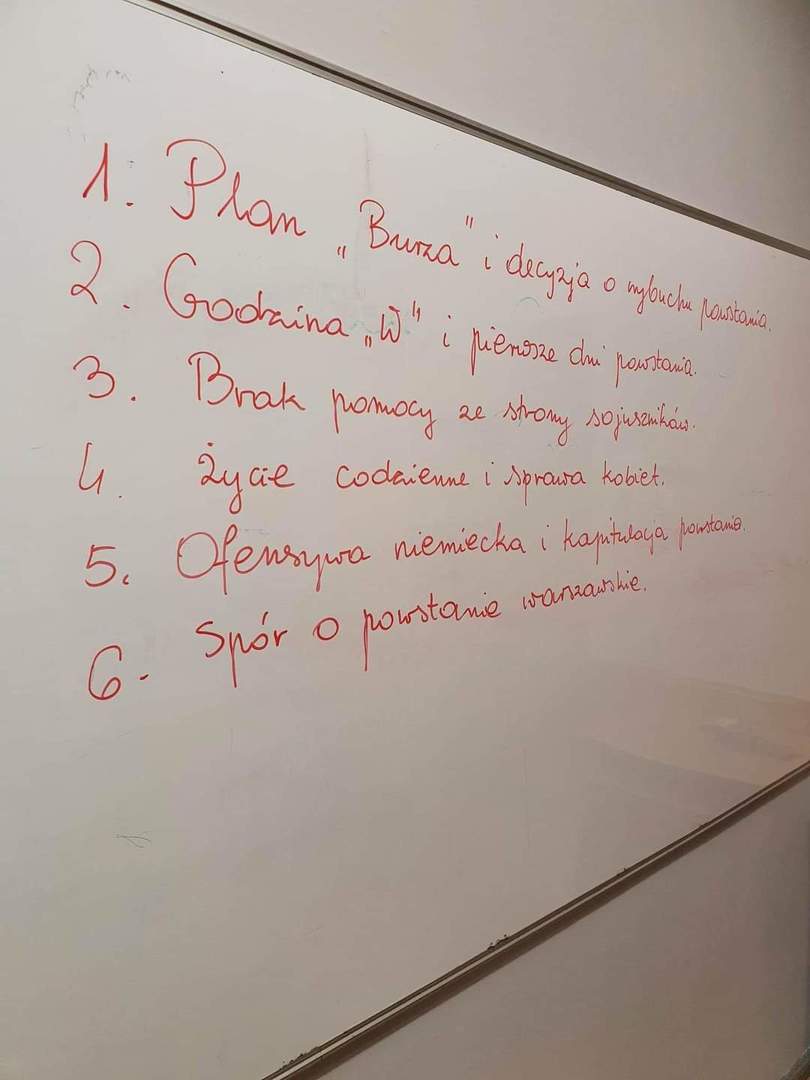 1. Plan „Burza" i decyzja o wybuchu powstania.
2. Godzina „W" i pierwsze dni powstania.
3. Brak pomocy ze strony sojuszników.
4. Życie codzienne i sprawa kobiet.
5. Ofensywa niemiecka i kapitulacja powstania.
6. Spór o powstanie warszawskie.